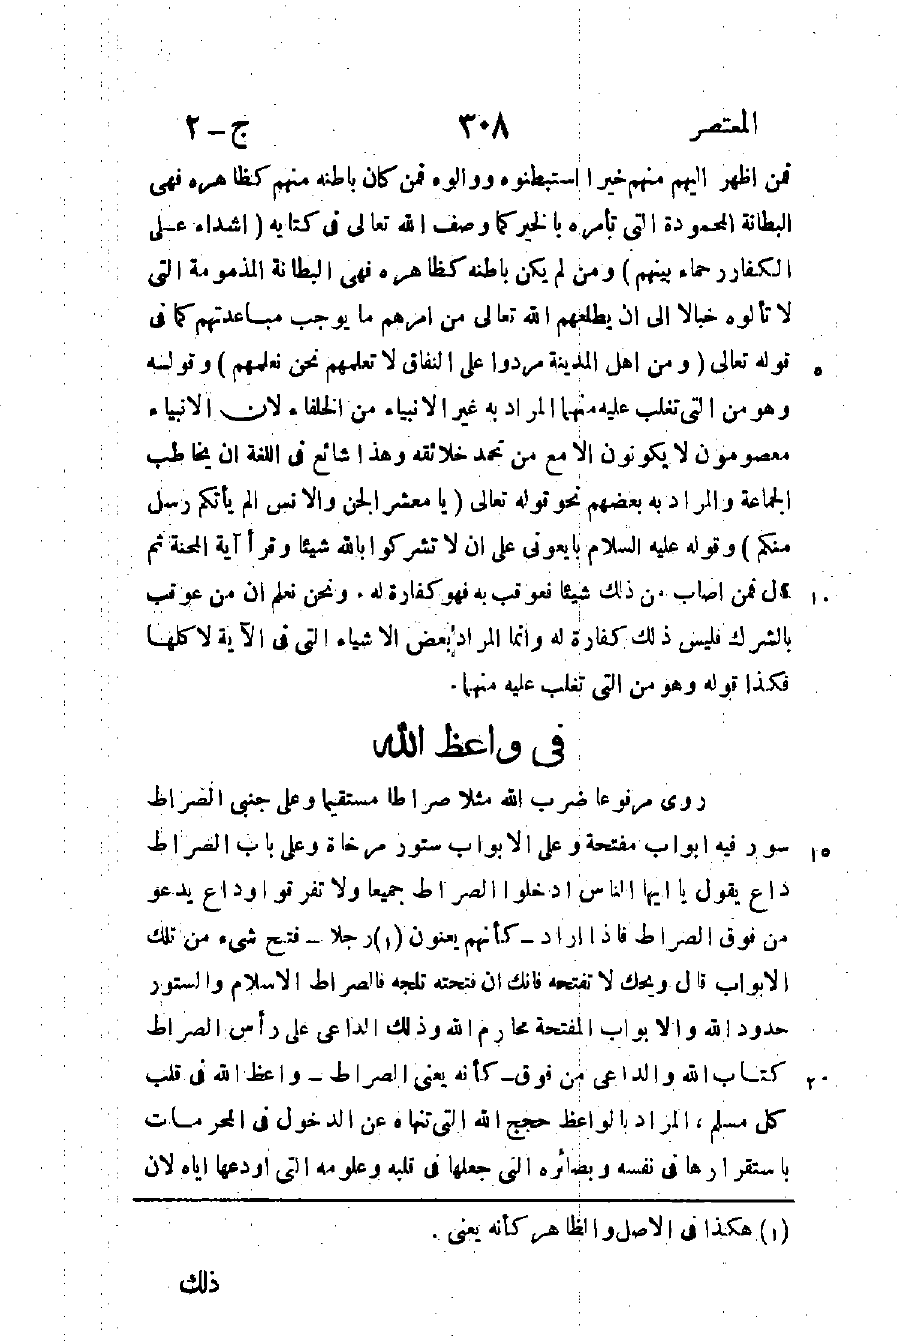 المعتصر ٣٠٨ ج - ٢
فمن اظهر اليهم منهم خيرا استبطنوه ووالوه فمن كان باطنه منهم كظاهره فهى
البطانة المحمودة التى تأمره بالخير كما وصف الله تعالى فى كتابه ( اشداء على
الكفار رحماء بينهم ) ومن لم يكن باطنه كظاهره فهى البطانة المذمومة التى
لا تألوه خبالا الى ان يطلعهم الله تعالى من امرهم ما يوجب مباعدتهم كما فى
قوله تعالى ( ومن اهل المدينة مردوا على النفاق لا تعلمهم نحن نعلمهم ) وقوله ٥
وهو من التى تغلب عليه منهما المراد به غير الانبياء من الخلفاء لان الانبياء
معصومون لا يكونون الا مع من تحمد خلائقه وهذا شائع فى اللغة ان يخاطب
الجماعة والمراد به بعضهم نحو قوله تعالى ( يا معشر الجن والانس الم يأتكم رسل
منكم ) وقوله عليه السلام بايعونى على ان لا تشركوا بالله شيئا وقرأ آية المحنة ثم
قال فمن اصاب من ذلك شيئا فعوقب به فهو كفارة له . ونحن نعلم ان من عوقب ١٠
بالشرك فليس ذلك كفارة له وانما المراد بعض الاشياء التى فى الآية لا كلها
فكذا قوله وهو من التى تغلب عليه منهما .
فى واعظ الله
روى مرفوعا ضرب الله مثلا صراطا مستقيما وعلى جنبى الصراط
سور فيه ابواب مفتحة وعلى الابواب ستور مرخاة وعلى باب الصراط ١٥
داع يقول يا ايها الناس ادخلوا الصراط جميعا ولا تفرقوا وداع يدعو
من فوق الصراط فاذا اراد - كأنهم يعنون (١) رجلا - فتح شىء من تلك
الابواب قال ويحك لا تفتحه فانك ان فتحته تلجه فالصراط الاسلام والستور
حدود الله والابواب المفتحة محارم الله وذلك الداعى على رأس الصراط
كتاب الله والداعى من فوق - كأنه يعنى الصراط - واعظ الله فى قلب ٢٠
كل مسلم ، المراد بالواعظ حجج الله التى تنهاه عن الدخول فى المحرمات
باستقرارها فى نفسه وبصائره التى جعلها فى قلبه وعلومه التى اودعها اياه لان
(١) هكذا فى الاصل والظاهر كأنه يعنى .
ذلك